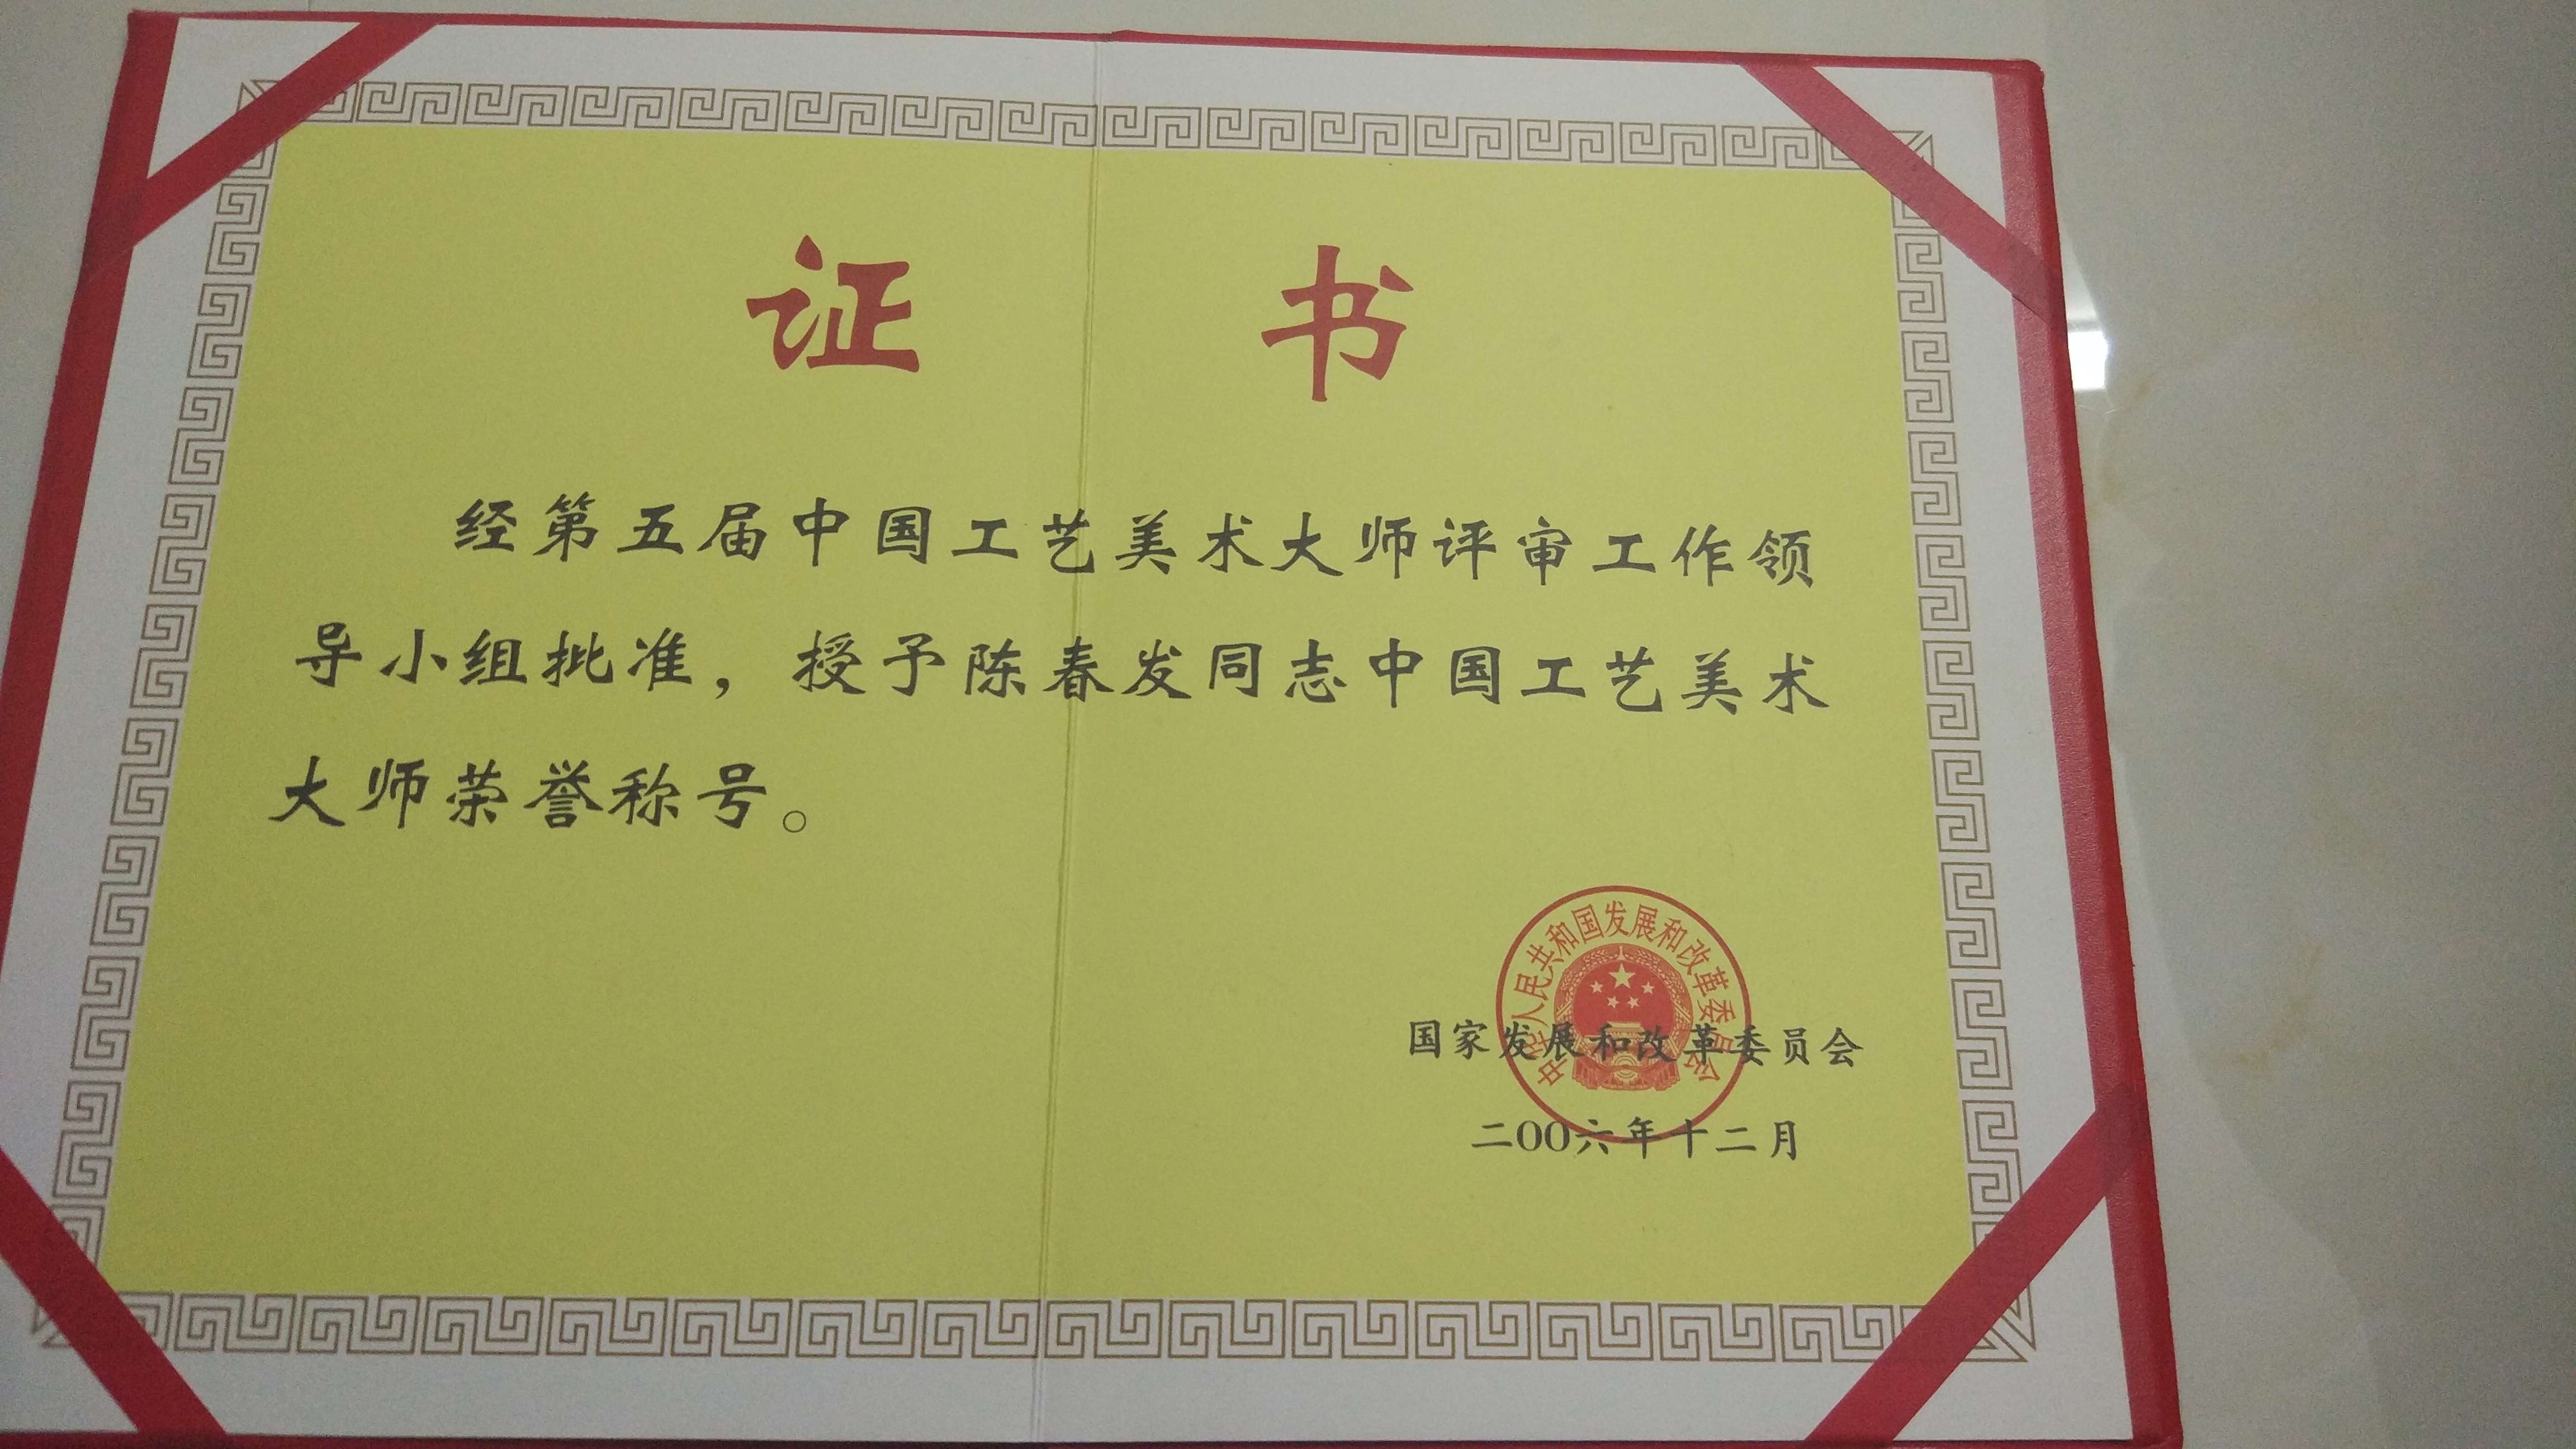 证书
经第五届中国工艺美术大师评审工作领
导小组批准，授予陈春发同志中国工艺美术
大师荣誉称号。
中华人民共和国发展和改革委员会
国家发展和改革委员会
二〇〇六年十二月